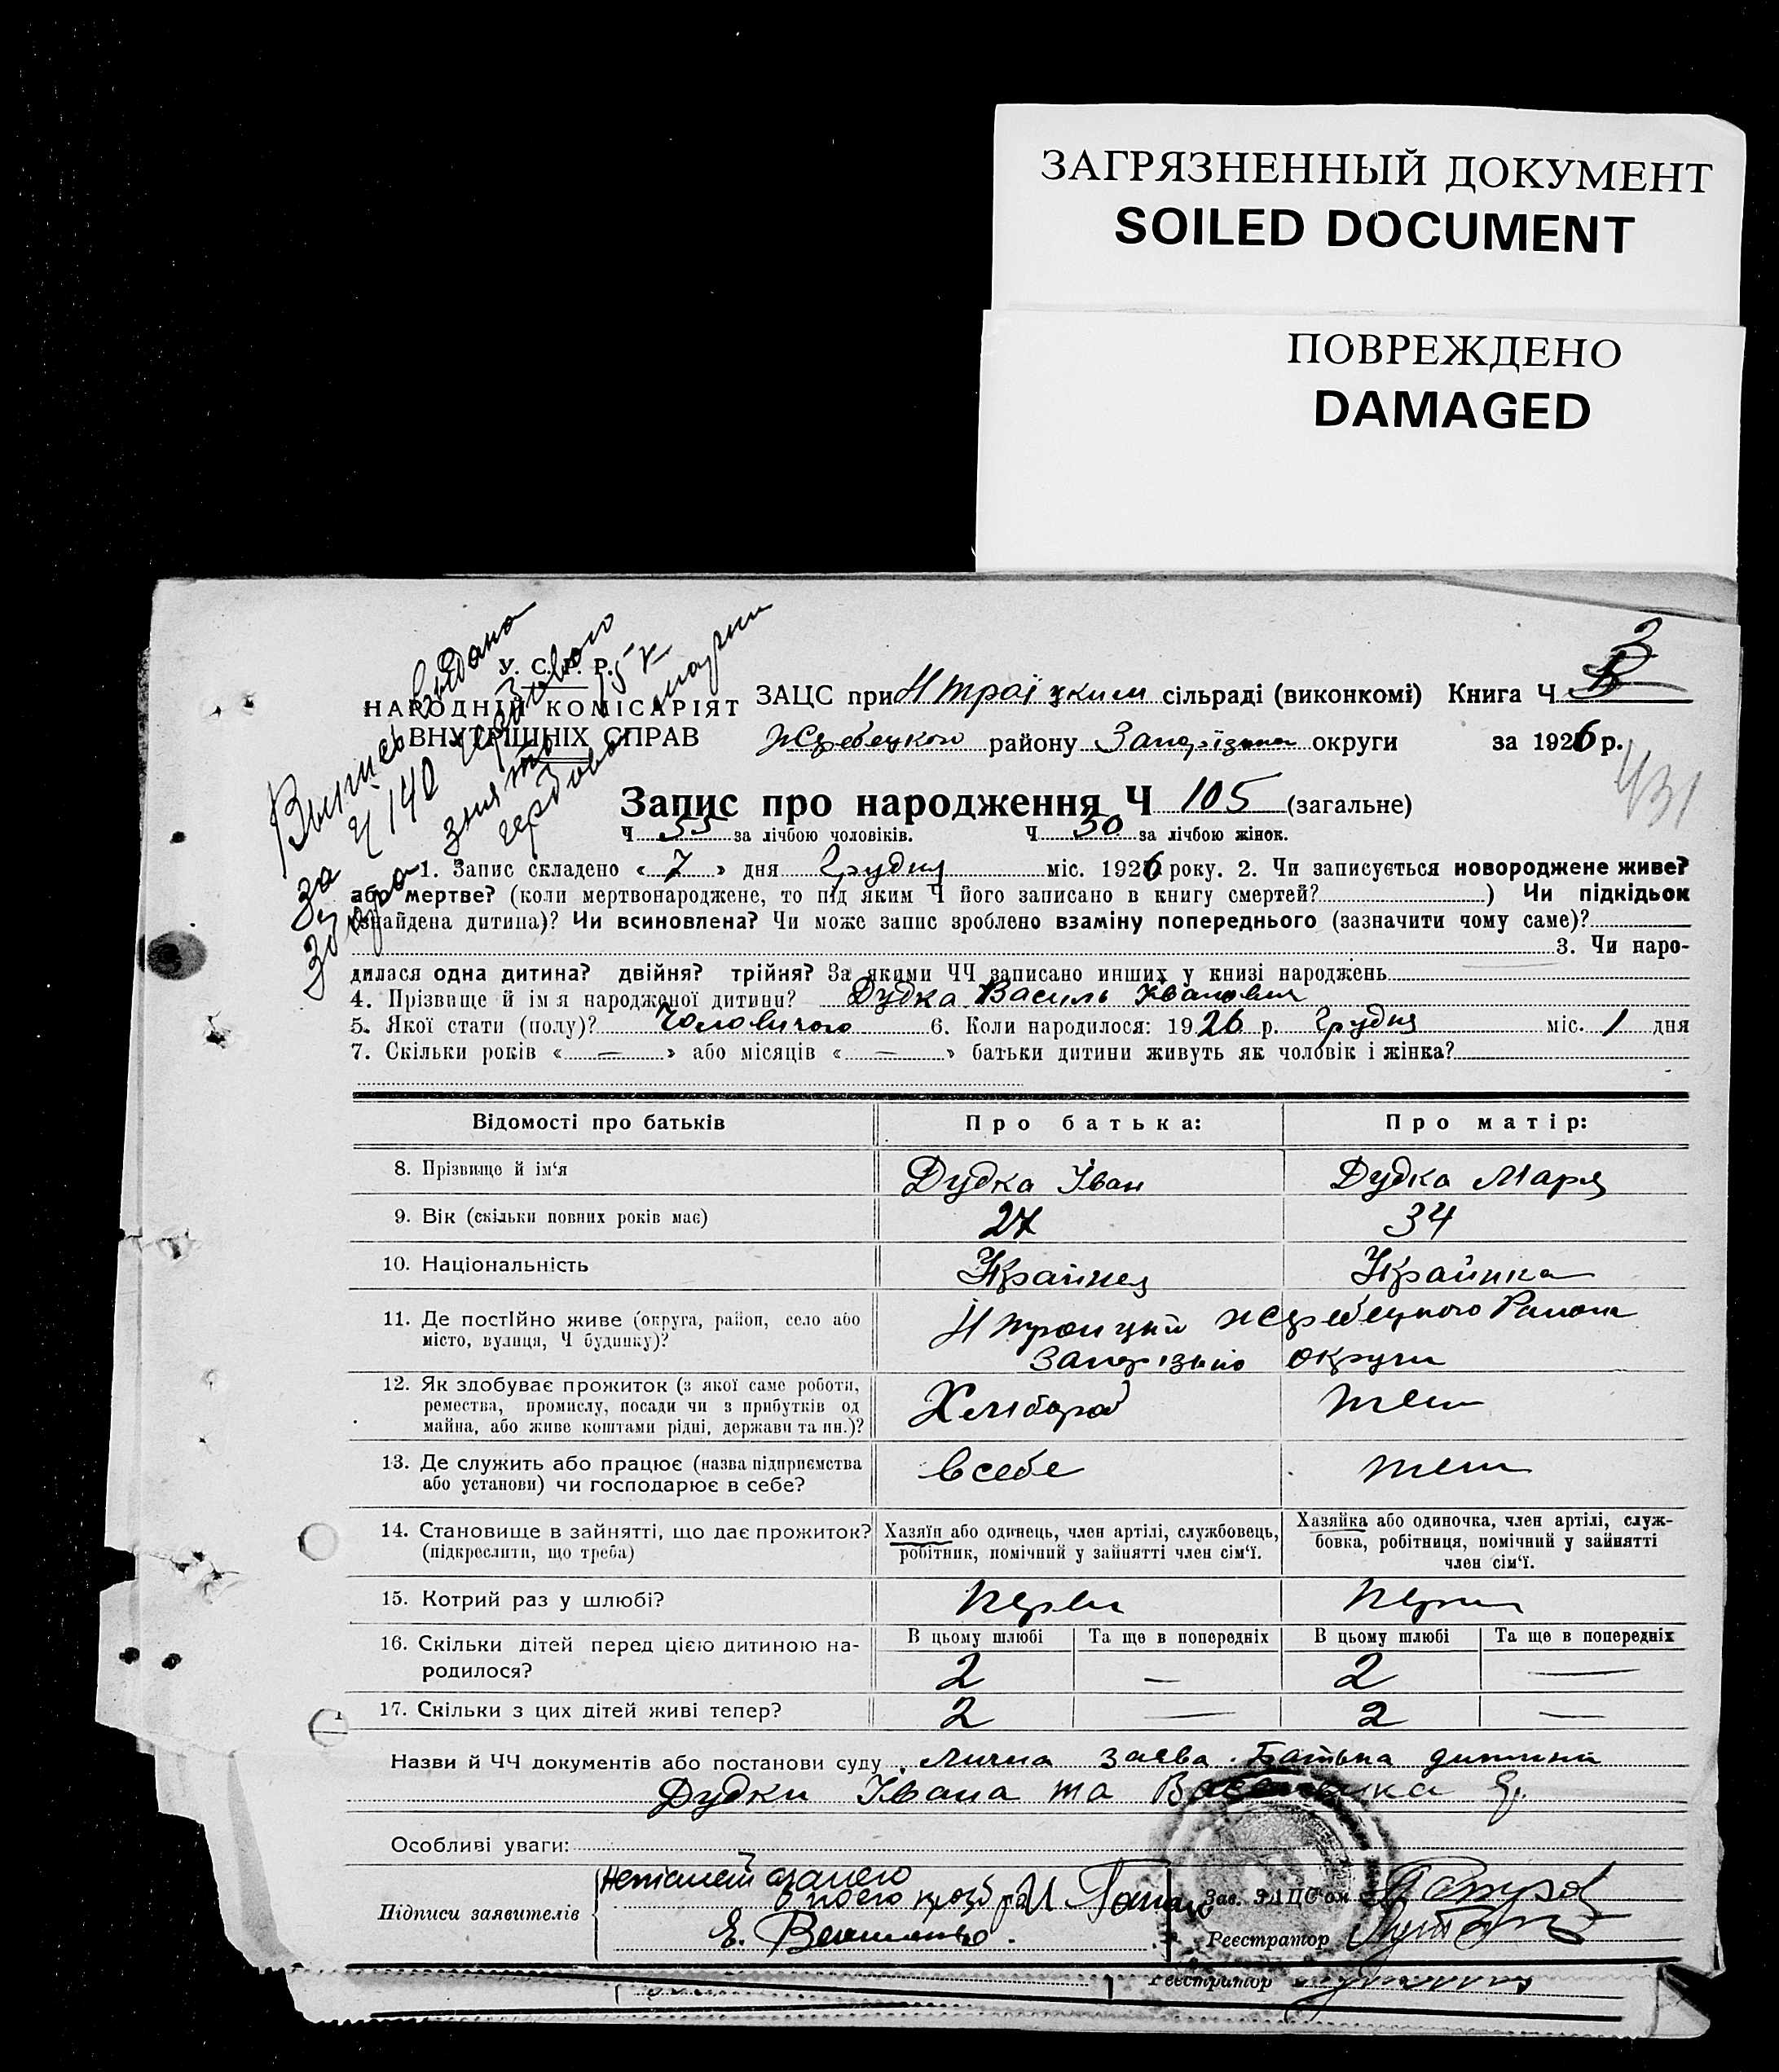 ЗАГРЯЗНЕННЫЙ ДОКУМЕНТ
SOILED DOCUMENT
ПОВРЕЖДЕНО
DAMAGED
У. С. Р. Р.
НАРОДНІЙ КОМІСАРІЯТ
ВНУТРІШНІХ СПРАВ
ЗАЦС при Н Троїцким сільраді (виконкомі) Книга Ч 3
Жеребецкого району Запорізька округи за 1926 р.
431
Запис про народження Ч 105 (загальне)
Ч 55 за лічбою чоловіків. Ч 50 за лічбою жінок.
1. Запис складено « 7 » дня Грудня міс. 1926 року. 2. Чи записується новороджене живе?
або мертве? (коли мертвонароджене, то під яким Ч його записано в книгу смертей? ) Чи підкідьок
(знайдена дитина)? Чи всиновлена? Чи може запис зроблено взаміну попереднього (зазначити чому саме)?
3. Чи наро-
дилася одна дитина? двійня? трійня? За якими ЧЧ записано инших у книзі народжень
4. Прізвище й ім я народженої дитини? Дудка Василь Іванович
5. Якої стати (полу)? Чоловічого 6. Коли народилося: 1926 р. Грудня міс. 1 дня
7. Скільки років « — » або місяців « — » батьки дитини живуть як чоловік і жінка?
Відомості про батьків Про батька: Про матір:
8. Прізвище й ім‘я Дудка Іван Дудка Марія
9. Вік (скільки повних років має) 27 34
10. Національність Україець Українка
11. Де постійно живе (округа, район, село або Н Троицкий Жеребецкого Району
місто, вулиця, Ч будинку)? Запорізької округи
12. Як здобуває прожиток (з якої саме роботи, Хлібороб теж
ремества, промислу, посади чи з прибутків од
майна, або живе коштами рідні, держави та ин.)?
13. Де служить або працює (назва підприємства всебе теж
або установи) чи господарює в себе?
14. Становище в зайнятті, що дає прожиток? Хазяїн або одинець, член артілі, службовець, Хазяйка або одиночка, член артілі, служ-
(підкреслити, що треба) робітник, помічний у зайнятті член сім‘ї. бовка, робітниця, помічний у зайнятті
член сім‘ї.
15. Котрий раз у шлюбі? первий
16. Скільки дітей перед цією дитиною на- В цьому шлюбі Та ще в попередніх В цьому шлюбі Та ще в попередніх
родилося? 2 — 2 —
17. Скільки з цих дітей живі тепер? 2 — 2 —
Назви й ЧЧ документів або постанови суду Лична заява батька дитини
Дудки Івана та
Особливі уваги:
Підписи заявителів
Зав. ЗАЦС‘ом
Реєстратор
Реєстратор